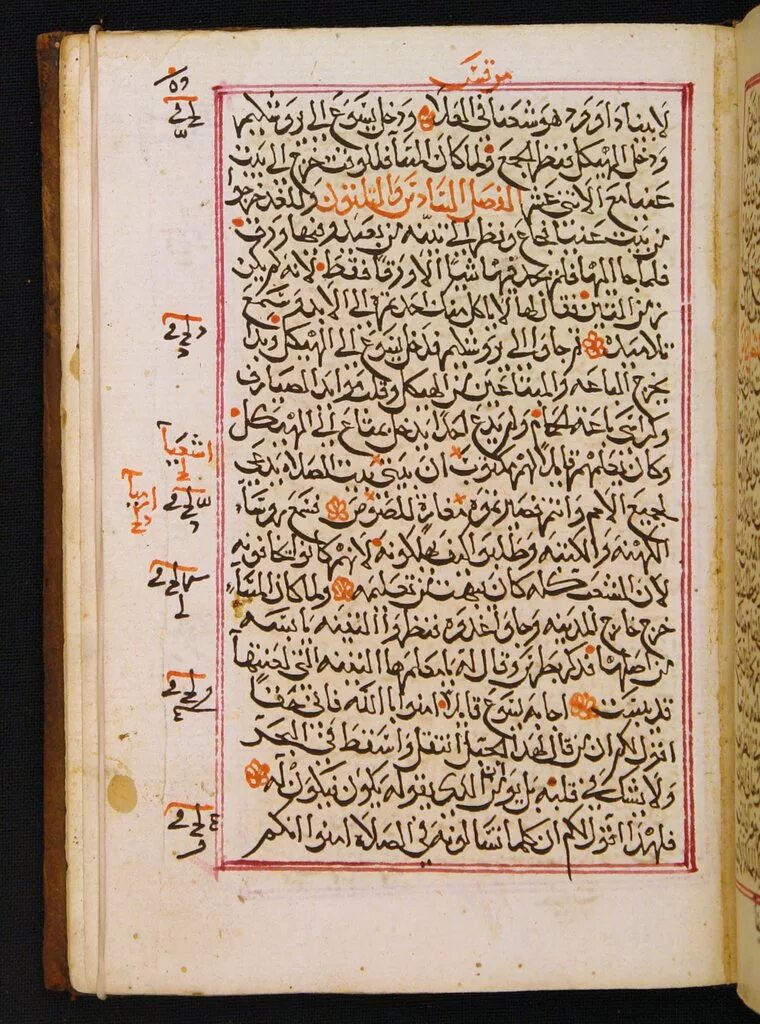 مرقس
لابينا داوود هوشعنا في العلا ودخل يسوع الى يروشليم
ودخل الهيكل فنظر الجمع ولما كان المسا فللوقت خرج الى بيت
عنيا مع الاثني عشر الفصل السادس والثلثون وللغد خرجوا
من بيت عنيا فجاع ونظر الى تينه من بعد وفيها ورق
فلما جا اليها فلم يجد فيها شيا الا ورقا فقط لانه لم يكن
زمن التين فقال لها لا ياكل منك احد ثمره الى الابد وسمع
تلاميذه ثم جاوا الى يروشليم فدخل يسوع الى الهيكل وبدا
يخرج الباعه والمبتاعين من الهيكل وقلب موايد الصيارف
وكراسي باعة الحمام ولم يدع احدا يدخل بمتاع الى الهيكل
اشعيا
وكان يعلمهم قايلا لهم مكتوب ان بيتي بيت الصلاه يدعى
ارميا
لجميع الامم وانتم تصيرونه مغارة للصوص فسمع روسا
الكهنه والكتبه وطلبوا كيف يهلكونه لانهم كانوا يخافونه
لان الشعب كله كان يبهت من تعليمه ولما كان المسا
خرج خارج المدينه وجاوا غدوه فنظروا التينه يابسه
من اصلها فذكر بطرس وقال له يامعلم ها التينه التي لعنتها
قد يبست اجابه يسوع قايلا امنوا بالله فاني حقا
اقول لكم ان من قال لهذا الجبل انتقل واسقط في البحر
ولا يشك في قلبه بل يومن ان الذي يقوله يكون فيكون له
فلهذا اقول لكم ان كلما تسالونه في الصلاه امنوا انكم